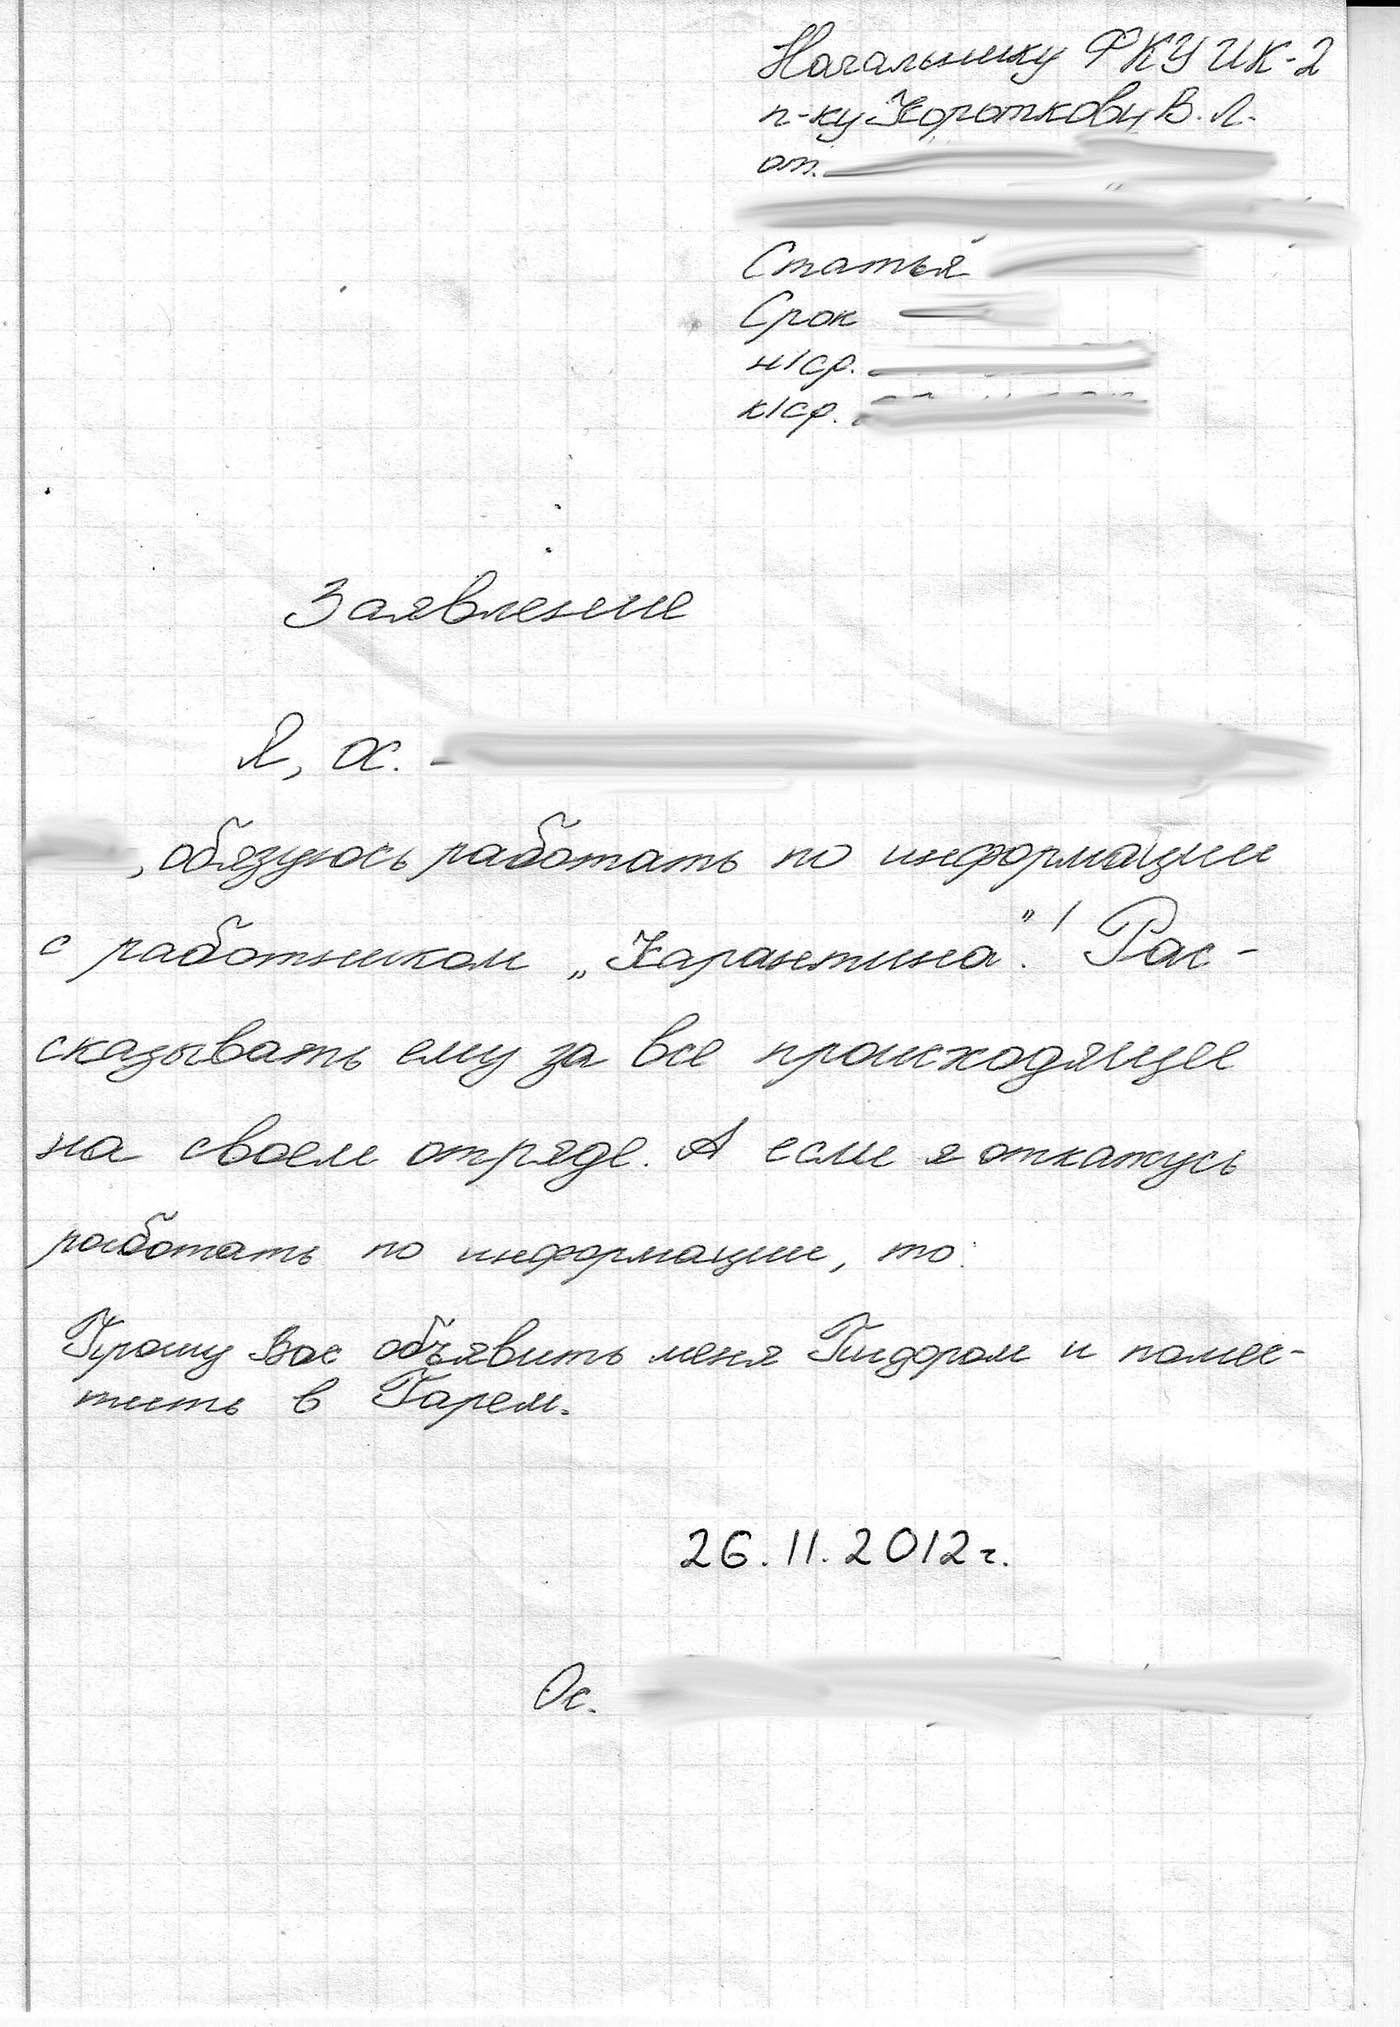 Начальнику ФКУ ИК-2
п-ку Короткову В. Л.
от.
Статья
Срок
н/ср.
к/ср.
Заявление
Я, ос.
, обязуюсь работать по информации
с работником „Карантина". ! Рас-
сказывать ему за все происходящее
на своем отряде. А если я откажусь
работать по информации, то:
Прошу Вас объявить меня Пидором и помес-
тить в Гарем.
26.11.2012 г.
Ос.